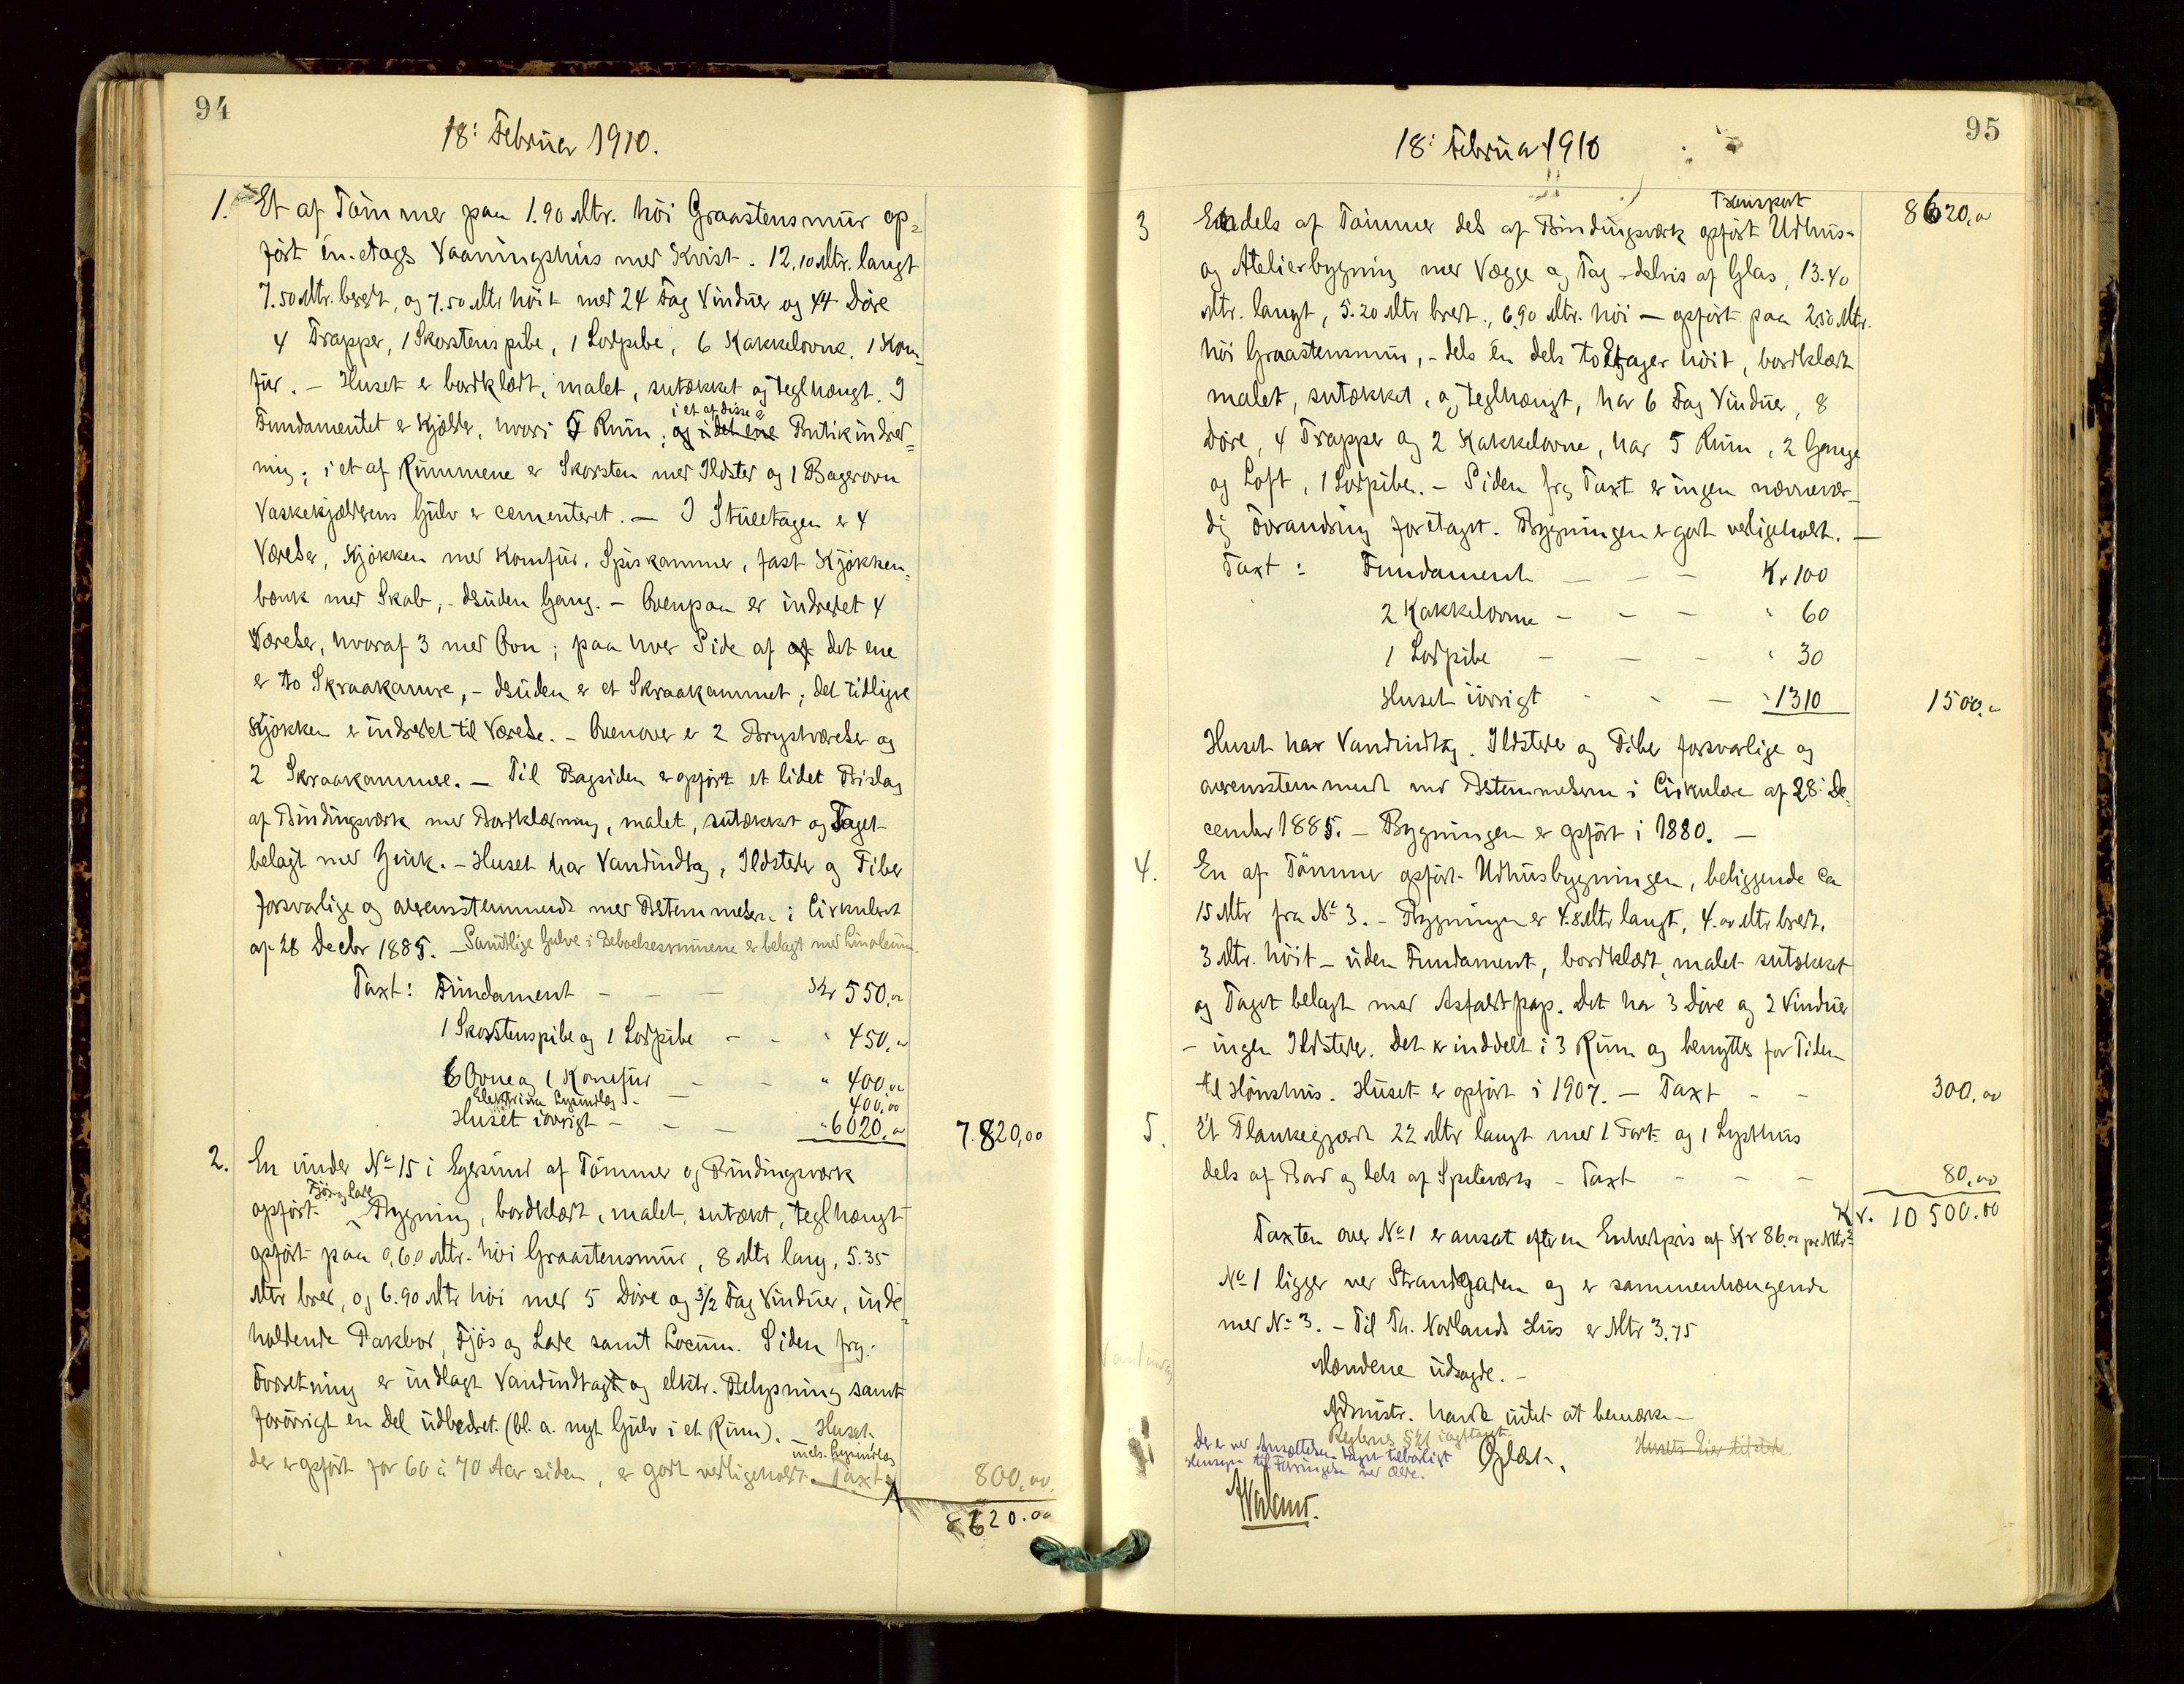 94
18: Februar 1910.
1. Et af Tømmer paa 1.90 Mtr. høi Graastensmur op=
ført én-etages Vaaningshus med Kvist. 12.10 Mtr. langt
7.50 Mtr. bredt, og 7.50 Mtr høit med 24 Fag Vinduer og 44 Døre
4 Trapper, 1 Skorstenspibe, 1 Lodpibe, 6 Kakkelovne, 1 Kom=
fur. – Huset er bordklædt, malet, sutækket og teglhængt. I
Fundamentet er Kjælder, hvori 7 Rum; og i det ene i et af disse er Butikindred=
ning; i et af Rummene er Skorsten med Ildsted og 1 Bagerovn
Vaskekjælderens Gulv er cementeret. – I Stueetagen er 4
Værelser, Kjøkken med Komfur, Spiskammer, fast Kjøkken=
bænk med Skab, – desuden Gang. – Ovenpaa er indredet 4
Værelser, hvoraf 3 med Ovn; paa hver Side af af det ene
er to Skraakamre, – desuden er et Skraakammet; det tidligere
Kjøkken er indredet til Værelse. – Ovenover er 2 Brystværelser og
2 Skraakammere. – Til Bagsiden er opført et lidet Bislag
af Bindingsværk med Bordklædning, malet, sutækket og Taget
belagt med Zink. – Huset har Vandindlæg, Ildsteder og Piber
forsvarlige og overensstemmende med Bestemmelsen i Cirkulæret
af 28 Decbr 1885. – Samtlige Gulve i Beboelsesrummene er belagt med Linoleum.
Taxt: Fundament – – – Kr 550.00
1 Skorstenspibe og 1 Lodpibe – – " 450.00
6 Ovne og 1 Komfur – – " 400.00
Elektrisk Lysindlæg – – 400.00
Huset iøvrigt – – – " 6020.00 7.820,00
2. En under No 15 i Egersund af Tømmer og Bindingsværk
opført Fjøs og Lade Bygning, bordklædt, malet, sutækt, teglhængt
opført paa 0,60 Mtr. høi Graastensmur, 8 Mtr lang, 5.35
Mtr bred, og 6.90 Mtr høi med 5 Døre og 3/2 Fag Vinduer, inde=
holdende Pakbod, Fjøs og Lade samt Locum. Siden frg.
Forretning er indlagt Vandindlægt og elktr. Belysning samt
forøvrigt en Del udbedret. (bl. a. nyt Gulv i et Rum). – Huset
der er opført for 60 à 70 Aar siden, er godt vedligeholdt. incl. Lysindlæg Taxt 800,00.
8620.00
95
18: Februar 1910
Transport 8620,00
3 En dels af Tømmer dels af Bindingsværk opført Udhus-
og Atelierbygning med Vægge og Tag delvis af Glas, 13.40
Mtr. langt, 5.20 Mtr bredt, 6.90 Mtr. høi – opført paa 2.50 Mtr.
høi Graastensmur, – dels én dels to Etager høit, bordklædt
malet, sutækket, og teglhængt, har 6 Fag Vinduer, 8
Døre, 4 Trapper og 2 Kakkelovne, har 5 Rum, 2 Gange
og Loft, 1 Lodpibe. – Siden frg Taxt er ingen nævnevær=
dig Forandring foretaget. Bygningen er godt vedligeholdt. –
Taxt: Fundament – – – Kr 100
2 Kakkelovne – – – " 60
1 Lodpibe – – – " 30
Huset iøvrigt – – – " 1310 1500.00
Huset har Vandindlæg. Ildsteder og Piber forsvarlige og
overensstemmende med Bestemmelsen i Cirkulære af 28: De=
cember 1885. – Bygningen er opført i 1880. –
4. En af Tømmer opført Udhusbygningen, beliggende ca
15 Mtr fra No 3. – Bygningen er 4.8 Mtr langt, 4.00 Mtr bredt,
3 Mtr. høit – uden Fundament, bordklædt, malet sutækket
og Taget belagt med Asfaltpap. Det har 3 Døre og 2 Vinduer
– ingen Ildsteder. Det er inddelt i 3 Rum og benyttes for Tiden
til Hønshus. Huset er opført i 1907. – Taxt – – 300,00
5. Et Plankegjærde 22 Mtr langt med 1 Port og 1 Lysthus
dels af Bord og dels af Spileværk – Taxt – – – 80,00
Kr. 10500.00
Taxten over No 1 er ansat efter en Enhetspris af Kr 86.00 pr Mtr2
No 1 ligger ved Strandgaden og er sammenhængende
med No 3. – Til Th. Norlands Hus er Mtr 3.75
Mændene udsagde. –
Admistr. havde intet at bemærke –
Reglernes § 21 iagttaget.
Der er ved Ansættelsen taget tilbørligt
Hensyn til Forringelse ved Ælde.
Oplæst.
Husets Eier tilstede.